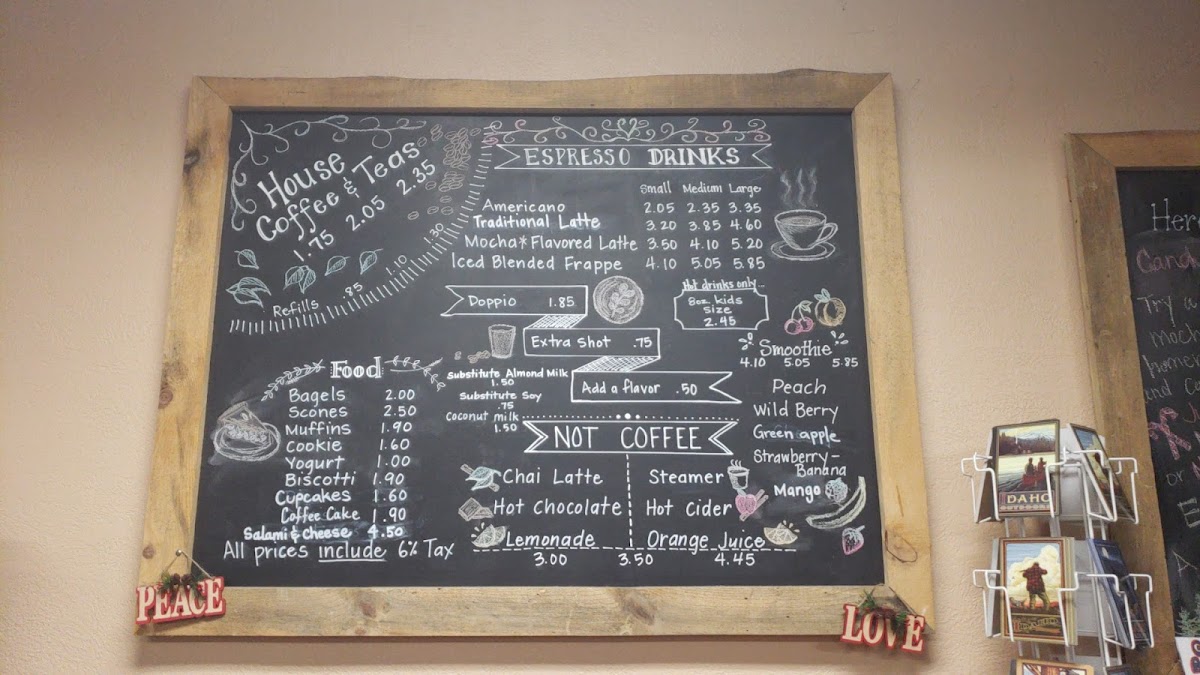 House
Coffee & Teas
1.75 2.05 2.35
Refills .85 1.10 1.30
ESPRESSO DRINKS
Small Medium Large
Americano 2.05 2.35 3.35
Traditional Latte 3.20 3.85 4.60
Mocha*Flavored Latte 3.50 4.10 5.20
Iced Blended Frappe 4.10 5.05 5.85
Doppio 1.85
Extra Shot .75
Add a flavor .50
Hot drinks only...
8oz. kids
size
2.45
Substitute Almond Milk
1.50
Substitute Soy
.75
Coconut milk
1.50
Smoothie
4.10 5.05 5.85
Peach
Wild Berry
Green apple
Strawberry-
Banana
Mango
Food
Bagels 2.00
Scones 2.50
Muffins 1.90
Cookie 1.60
Yogurt 1.00
Biscotti 1.90
Cupcakes 1.60
Coffee Cake 1.90
Salami & Cheese 4.50
All prices include 6% Tax
NOT COFFEE
Chai Latte Steamer
Hot Chocolate Hot Cider
Lemonade Orange Juice
3.00 3.50 4.45
PEACE
LOVE
Try
DAHO